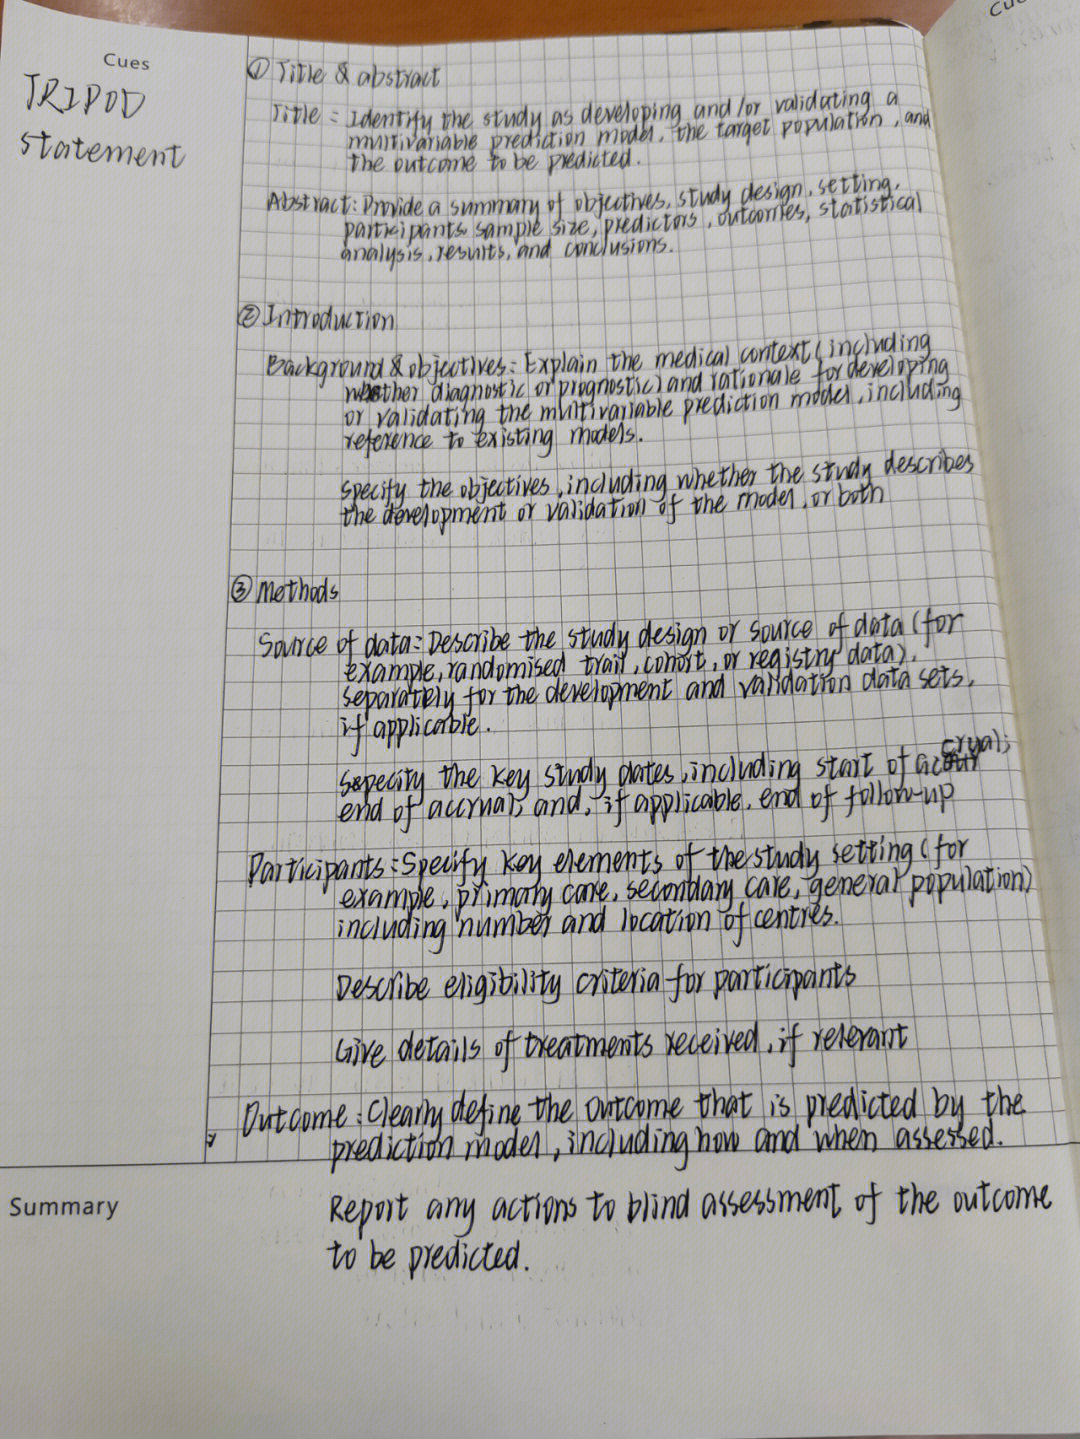 Cues
TRIPOD
statement
① Title & abstract
Title: Identify the study as developing and/or validating a
multivariable prediction model, the target population, and
the outcome to be predicted.
Abstract: Provide a summary of objectives, study design, setting,
participants sample size, predictors, outcomes, statistical
analysis, results, and conclusions.
② Introduction
Background & objectives: Explain the medical context (including
whether diagnostic or prognostic) and rationale for developing
or validating the multivariable prediction model, including
reference to existing models.
specify the objectives, including whether the study describes
the development or validation of the model, or both
③ Methods
Source of data: Describe the study design or source of data (for
example, randomised trail, cohort, or registry data),
separately for the development and validation data sets,
if applicable.
specity the key study dates, including start of accrual;
end of accrual; and, if applicable, end of follow-up
Participants: Specify key elements of the study setting (for
example, primary care, secondary care, general population)
including number and location of centres.
Describe eligibility criteria for participants
Give details of treatments received, if relevant
Outcome: Clearly define the outcome that is predicted by the
prediction model, including how and when assessed.
Summary
Report any actions to blind assessment of the outcome
to be predicted.